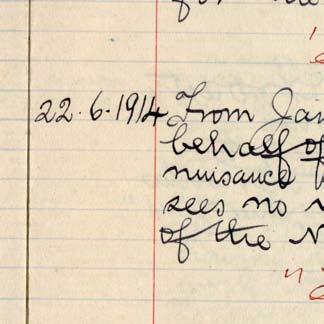 22.6.1914 From
behalf of
nuisance
sees no
of the